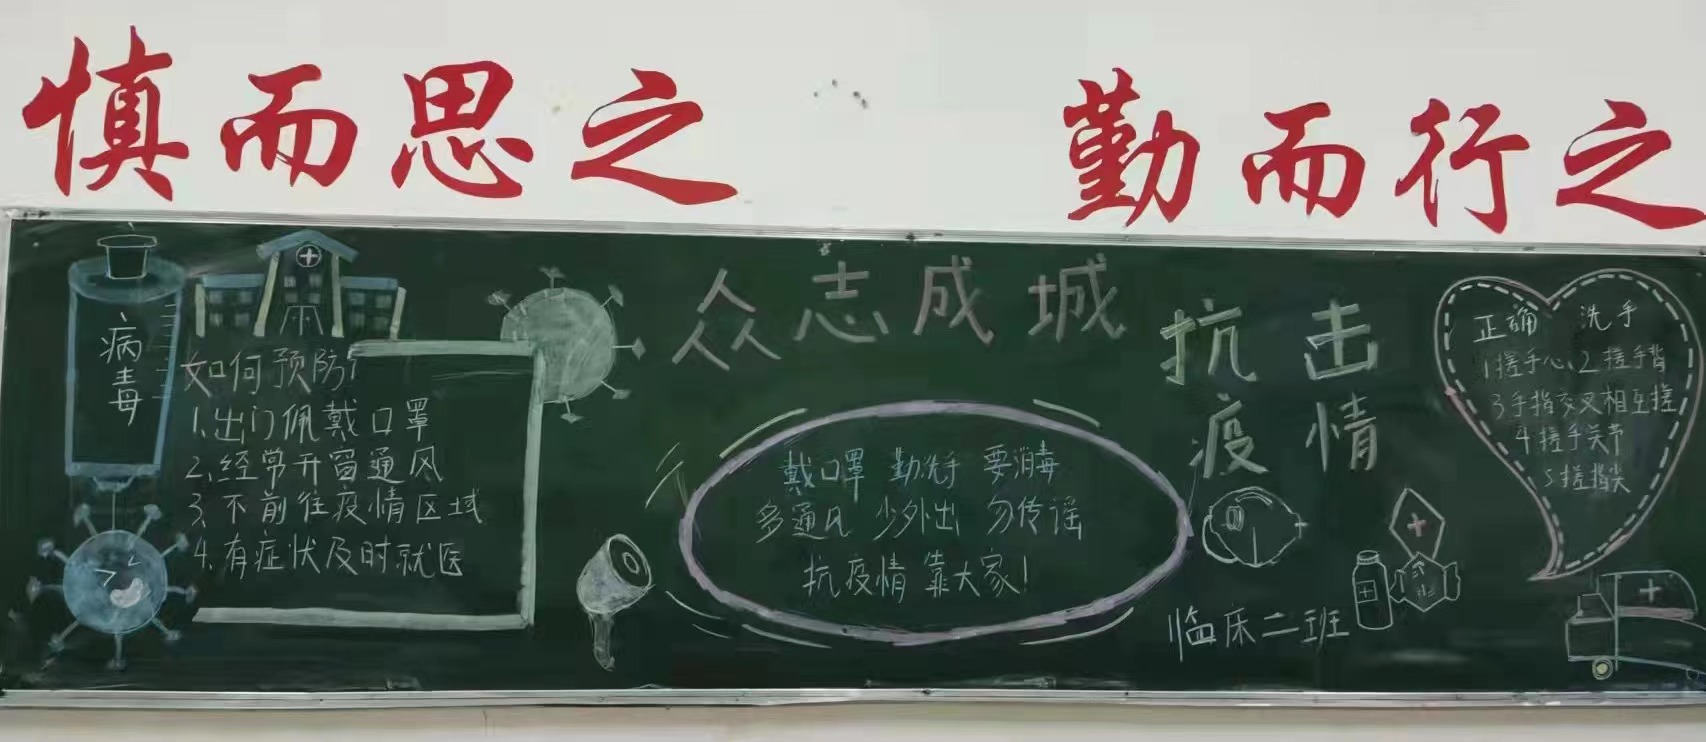 慎而思之
勤而行之
病毒
如何预防?
1.出门佩戴口罩
2.经常开窗通风
3.不前往疫情区域
4.有症状及时就医
众志成城
抗击
疫情
戴口罩 勤洗手 要消毒
多通风 少外出 勿传谣
抗疫情 靠大家!
临床二班
正确 洗手
1搓手心、2搓手背
3手指交叉相互搓
4搓手关节
5搓指尖